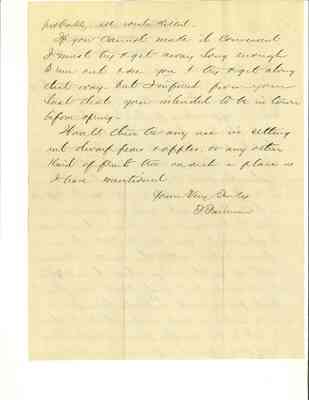 probably all winter killed.
If you cannot make it convenient
I must try & get away long enough
to run out & see you & try & get along
that way but I inferred from your
last that you intended to be in town
before spring.
Would there be any use in setting
out dwarf pears & apples or any other
kind of fruit tree in such a place as
I have mentioned
Yours Very Truly